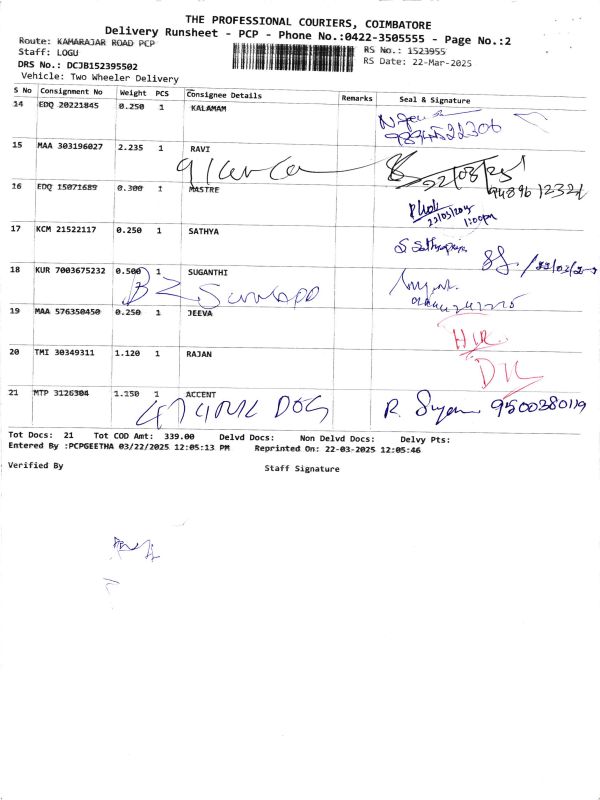 THE PROFESSIONAL COURIERS, COIMBATORE
Delivery Runsheet - PCP - Phone No.:0422-3505555 - Page No.:2
Route: KAMARAJAR ROAD PCP
RS No.: 1523955
Staff: LOGU
RS Date: 22-Mar-2025
DRS No.: DCJB152395502
Vehicle: Two Wheeler Delivery
S No Consignment No Weight PCS Consignee Details Remarks Seal & Signature
14 EDQ 20221845 0.250 1 KALAMAM
15 MAA 303196027 2.235 1 RAVI
22/03/25
16 EDQ 15071689 0.300 1 MASTRE
22/03/2025
1:00pm
17 KCM 21522117 0.250 1 SATHYA
S Sathyapriya
18 KUR 7003675232 0.500 1 SUGANTHI
19 MAA 576350450 0.250 1 JEEVA
20 TMI 30349311 1.120 1 RAJAN
DTC
21 MTP 3126304 1.150 1 ACCENT
DOG R. 9500380119
Tot Docs: 21 Tot COD Amt: 339.00 Delvd Docs: Non Delvd Docs: Delvy Pts:
Entered By :PCPGEETHA 03/22/2025 12:05:13 PM Reprinted On: 22-03-2025 12:05:46
Verified By Staff Signature